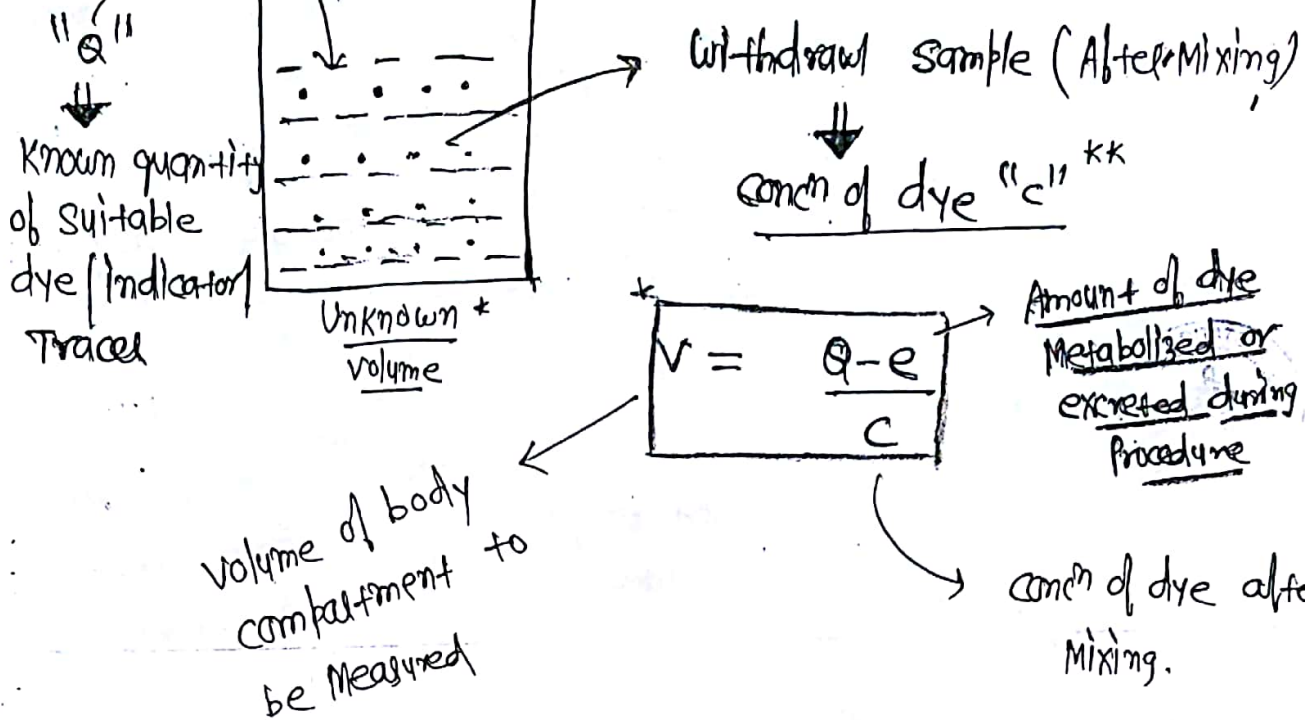 "Q"
⇓
Known quantity
of suitable
dye/Indicator/
Tracer
Unknown *
volume
Withdrawl Sample (After Mixing)
⇓
concn of dye "c" **
*
V = Q-e
C
Amount of dye
Metabolized or
excreted during
Procedure
volume of body
compartment to
be Measured
concn of dye afte
Mixing.